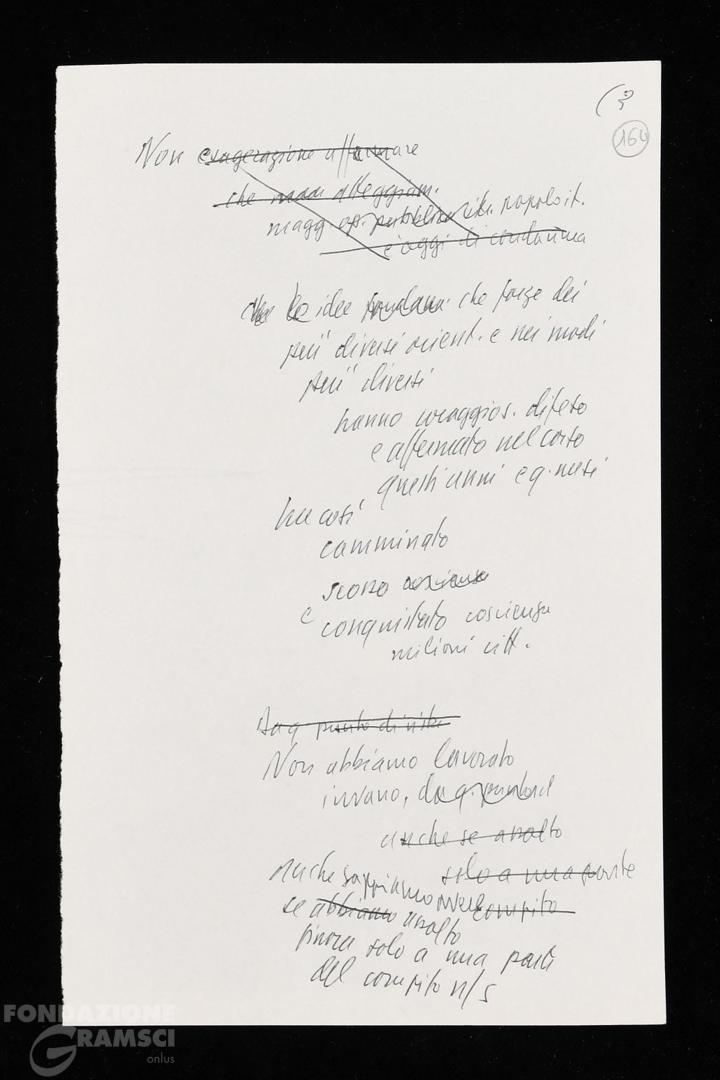 (3
164
Non esagerazione affermare
che atteggiam.
magg. op. pubblica popolo it.
è oggi di condanna
le idee che forze dei
più diversi orient. e nei modi
più diversi
hanno coraggios. difeso
e affermato nel corso
questi anni e q. mesi
ha così
camminato
scosso coscienze
e conquistato coscienza
milioni citt.
Da q. punto di vista
Non abbiamo lavorato
invano, da q. punto
anche se assolto
solo a una parte
anche sappiamo compito
se abbiamo assolto
finora solo a una parte
del compito n/s
FONDAZIONE
GRAMSCI
onlus